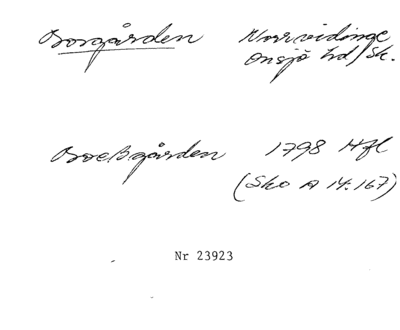 Borgården Norrvidinge
Onsjö hd/Sk.
Boeßgården 1798 Hfl
(Sko A 14:167)
Nr 23923